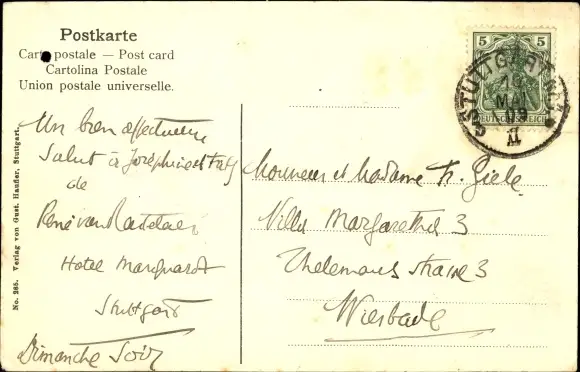 Postkarte
Carte postale — Post card
Cartolina Postale
Union postale universelle.
5 5
DEUTSCHES REICH
STUTTGART
MAI
09
Un bien affectueux
Salut à Joséphine et
de
René van
Hotel Marquardt
Stuttgart
Dimanche Soir
Monsieur et Madame Fr.
Villa Margaretha 3
Thelemann strasse 3
Wiesbade
No. 265. Verlag von Gust. Haufler, Stuttgart.